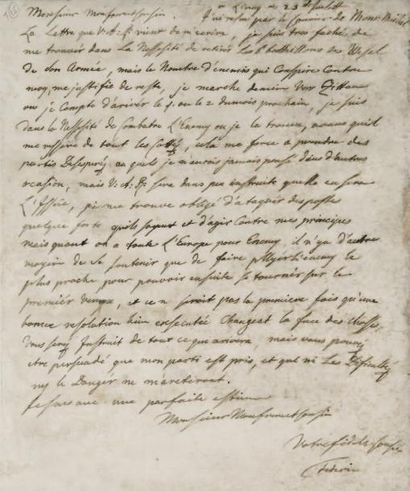 Monsieur Mon frere et cousin
J'ai reçu par le
La Lettre que V. A. S. vient de m'ecrire, je suis tres faché de
me trouver dans La Nessesité de retirer les Bataillons de Wesel
de son Armée, mais le Nombre d'enemis qui Conspire Contre
moy, me justifie de reste, je marche demain ver Zittau
ou je Compte d'ariver le 1. ou le 2 du mois prochain, je suis
dans la Nessesité de Combatre L'Enemy ou je le trouve, avans quil
me de tout les cotés, cela me force a prendre des
partis Desesperés, au quels je n'aurois jamais pensé dans d'autres
ocasion, mais V. A. S. sera dans peu instruite quelle en sera
L'issüe, je me trouve obligé d'ataquer des postes
quelque forts quils soyent et d'agir Contre mes principes
mais quant on a toute L'Europe pour Enemy, il n'y a d'autre
moyein de se soutenir que de faire L'enemy le
plus proche pour pouvoir ensuite se tourner sur le
premier venu, et ce ne seroit pas la premiere fois qu'une
bonne resolution bien executée Changeat la face des choses,
Vous serez Instruit de tout ce que arivera, mais vous pouvez
etre persuadé que mon parti est pris, et que ni Les Dificultéz
ny le Danger ne m'areteront.
je suis avec une parfaite estime
Monsieur Mon frere et Cousin
Votre fidele cousin
Federic